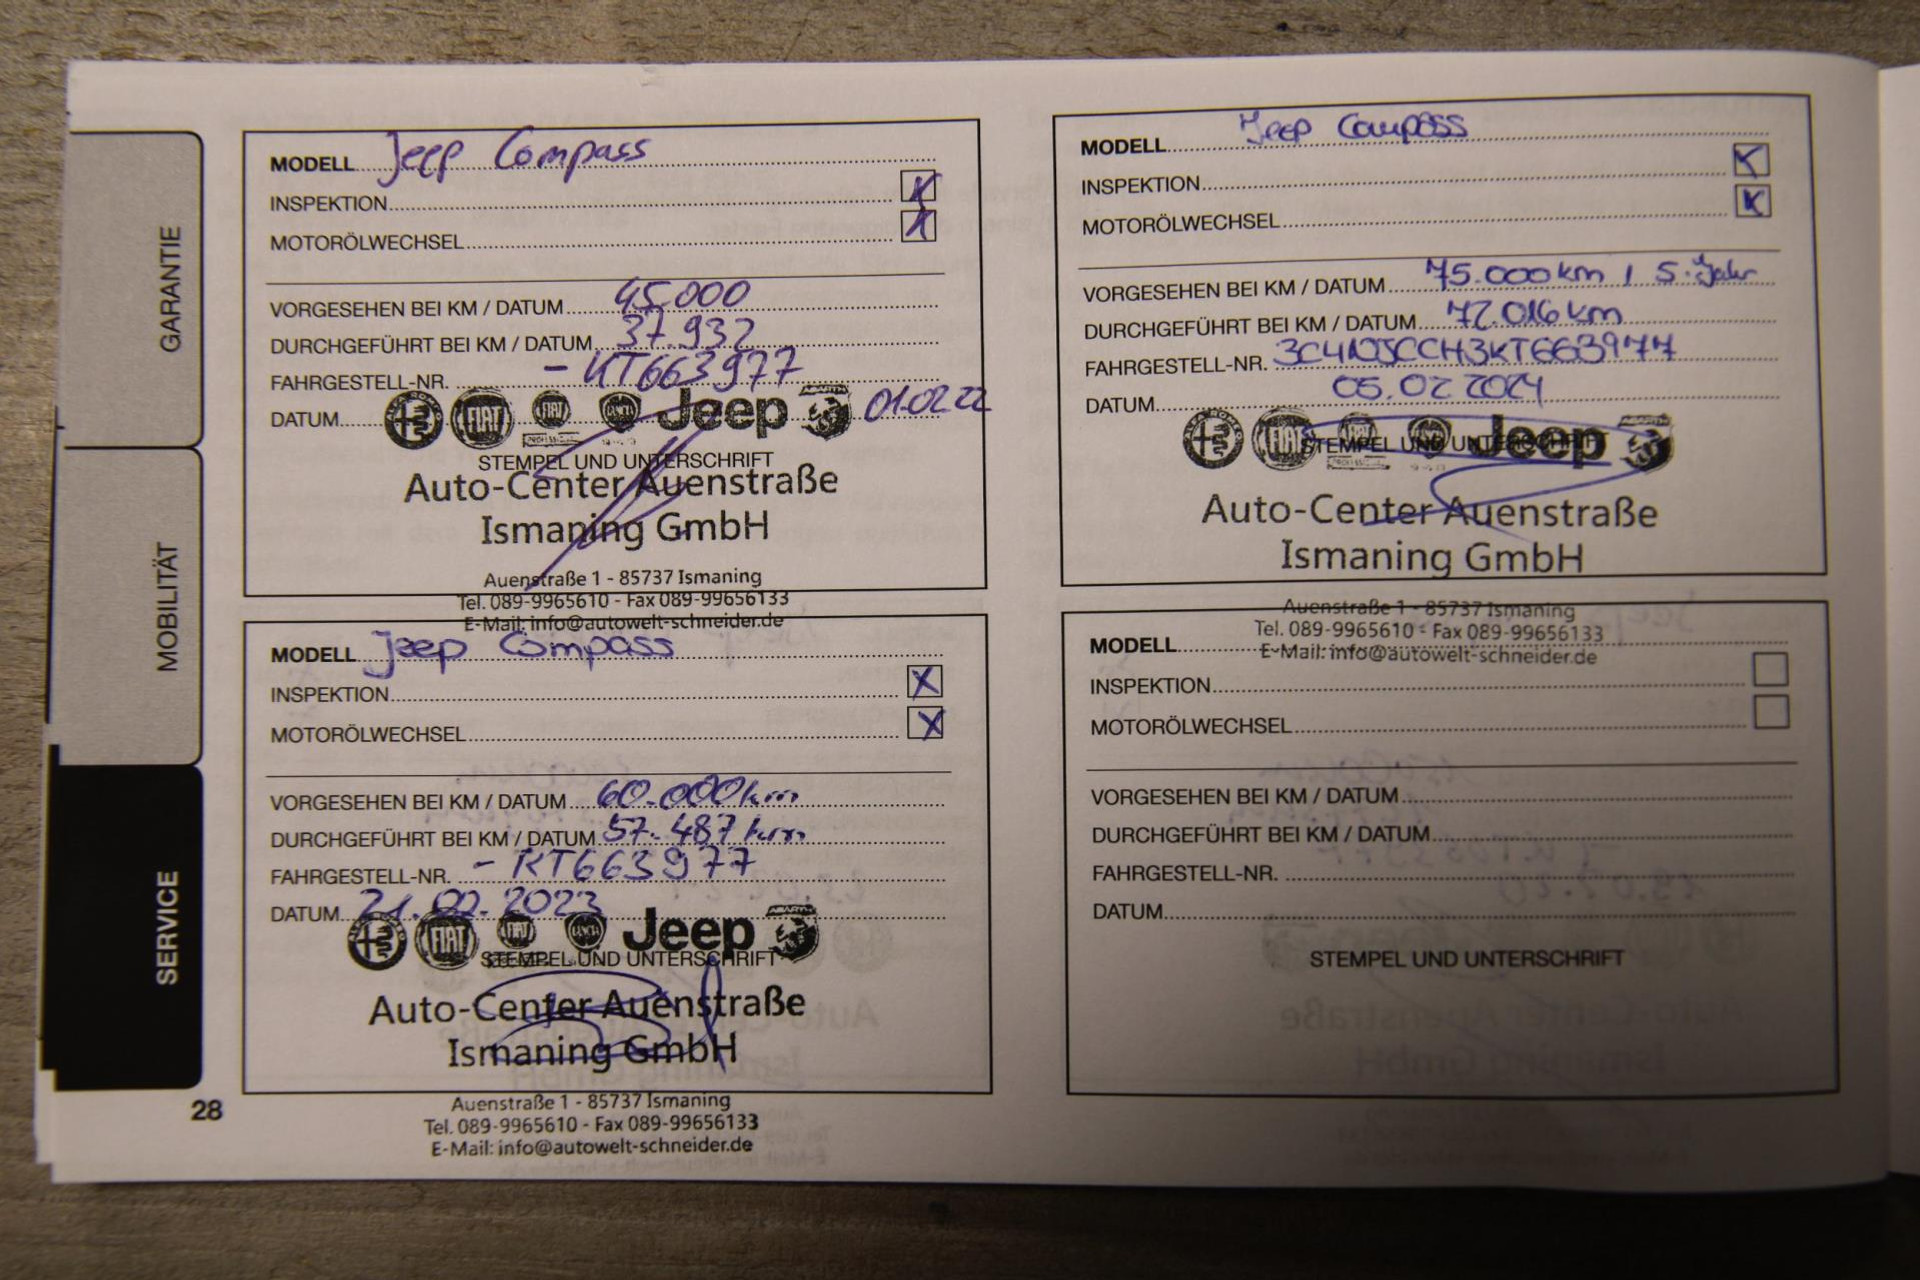 GARANTIE
MOBILITÄT
SERVICE
MODELL Jeep Compass
INSPEKTION X
MOTORÖLWECHSEL X
VORGESEHEN BEI KM / DATUM 45.000
DURCHGEFÜHRT BEI KM / DATUM 37.932
FAHRGESTELL-NR. - KT663977
DATUM 01.02.22
FIAT FIAT Jeep
STEMPEL UND UNTERSCHRIFT
Auto-Center Auenstraße
Ismaning GmbH
Auenstraße 1 - 85737 Ismaning
Tel. 089-9965610 - Fax 089-99656133
E-Mail: info@autowelt-schneider.de
MODELL Jeep Compass
INSPEKTION X
MOTORÖLWECHSEL X
VORGESEHEN BEI KM / DATUM 60.000km
DURCHGEFÜHRT BEI KM / DATUM 57.487km
FAHRGESTELL-NR. - KT663977
DATUM 21.02.2023
FIAT FIAT Jeep ABARTH
STEMPEL UND UNTERSCHRIFT
Auto-Center Auenstraße
Ismaning GmbH
Auenstraße 1 - 85737 Ismaning
Tel. 089-9965610 - Fax 089-99656133
E-Mail: info@autowelt-schneider.de
28
MODELL Jeep Compass
INSPEKTION X
MOTORÖLWECHSEL X
VORGESEHEN BEI KM / DATUM 75.000km / 5. Jahr
DURCHGEFÜHRT BEI KM / DATUM 72.016km
FAHRGESTELL-NR. 3C4NJCCH3KT663977
DATUM 05.02.2024
FIAT FIAT Jeep
STEMPEL UND UNTERSCHRIFT
Auto-Center Auenstraße
Ismaning GmbH
Auenstraße 1 - 85737 Ismaning
Tel. 089-9965610 - Fax 089-99656133
E-Mail: info@autowelt-schneider.de
MODELL
INSPEKTION
MOTORÖLWECHSEL
VORGESEHEN BEI KM / DATUM
DURCHGEFÜHRT BEI KM / DATUM
FAHRGESTELL-NR.
DATUM
STEMPEL UND UNTERSCHRIFT